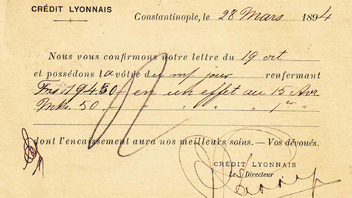 CRÉDIT LYONNAIS
Constantinople, le 28 Mars 1894
Nous vous confirmons notre lettre du 19 crt
et possédons la vôtre du mf jour renfermant
194.50 en un effet au 15 Avr
Mks. 50 " " " " 1er "
dont l'encaissement aura nos meilleurs soins. — Vos dévoués.
CRÉDIT LYONNAIS
Le Directeur